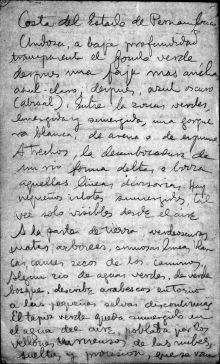 Costa del Estado de Pernambuco
Undosa, a baja profundidad
transparente el fondo verde
después una faja mas ancha
azul-claro, después, azul oscuro
(abisal). Entre la zonas verdes,
emergida y sumergida, una
blanca, de arena o de espuma
A trechos, la desembocadura de
un río forma deltas o borra
aquellas líneas divisoras. Hay
pequeños islotes sumergidos, tal
vez solo visibles desde el aire
A la parte de tierra, verdoscuras
matas arboreas, sinuosas lineas blan
cas, cauces secos de los caminos,
Algun río de aguas verdes, de verde
bosque, describe arabescos en torno
a las pequeñas selvas discontinuas.
El tapiz verde queda sumergido en
el agua del aire, poblada por los
vellones inmensos de las nubes,
sueltas y procesion, que se van